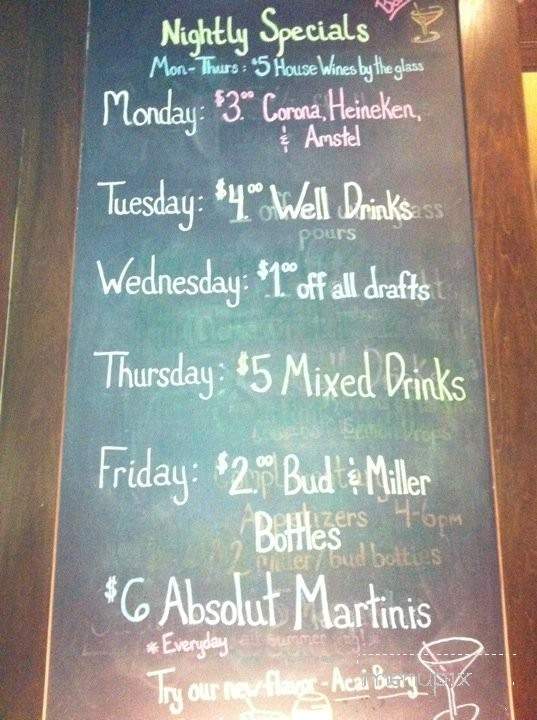 Nightly Specials
Mon-Thurs: $5 House Wines by the glass
Monday: $3.00 Corona, Heineken,
& Amstel
Tuesday: $4.00 Well Drinks
pours
Wednesday: $1.00 off all drafts
Thursday: $5 Mixed Drinks
Friday: $2.00 Bud & Miller
Appetizers 4-6pm
Bottles
2 miller/bud bottles
$6 Absolut Martinis
* Everyday all summer
Try our new flavor - Acai Berry
menupix